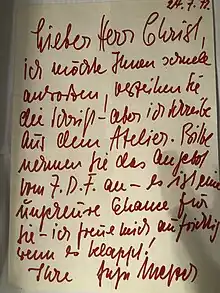 24.7.72
Lieber Herr Christ,
ich möchte Ihnen schnell
antworten! Verzeihen Sie
die Schrift – aber ich schreibe
aus dem Atelier. Bitte
nehmen Sie das Angebot
vom Z.D.F. an – es ist eine
ungeheure Chance für
Sie – ich freue mich aufrichtig
wenn es klappt!
Ihre